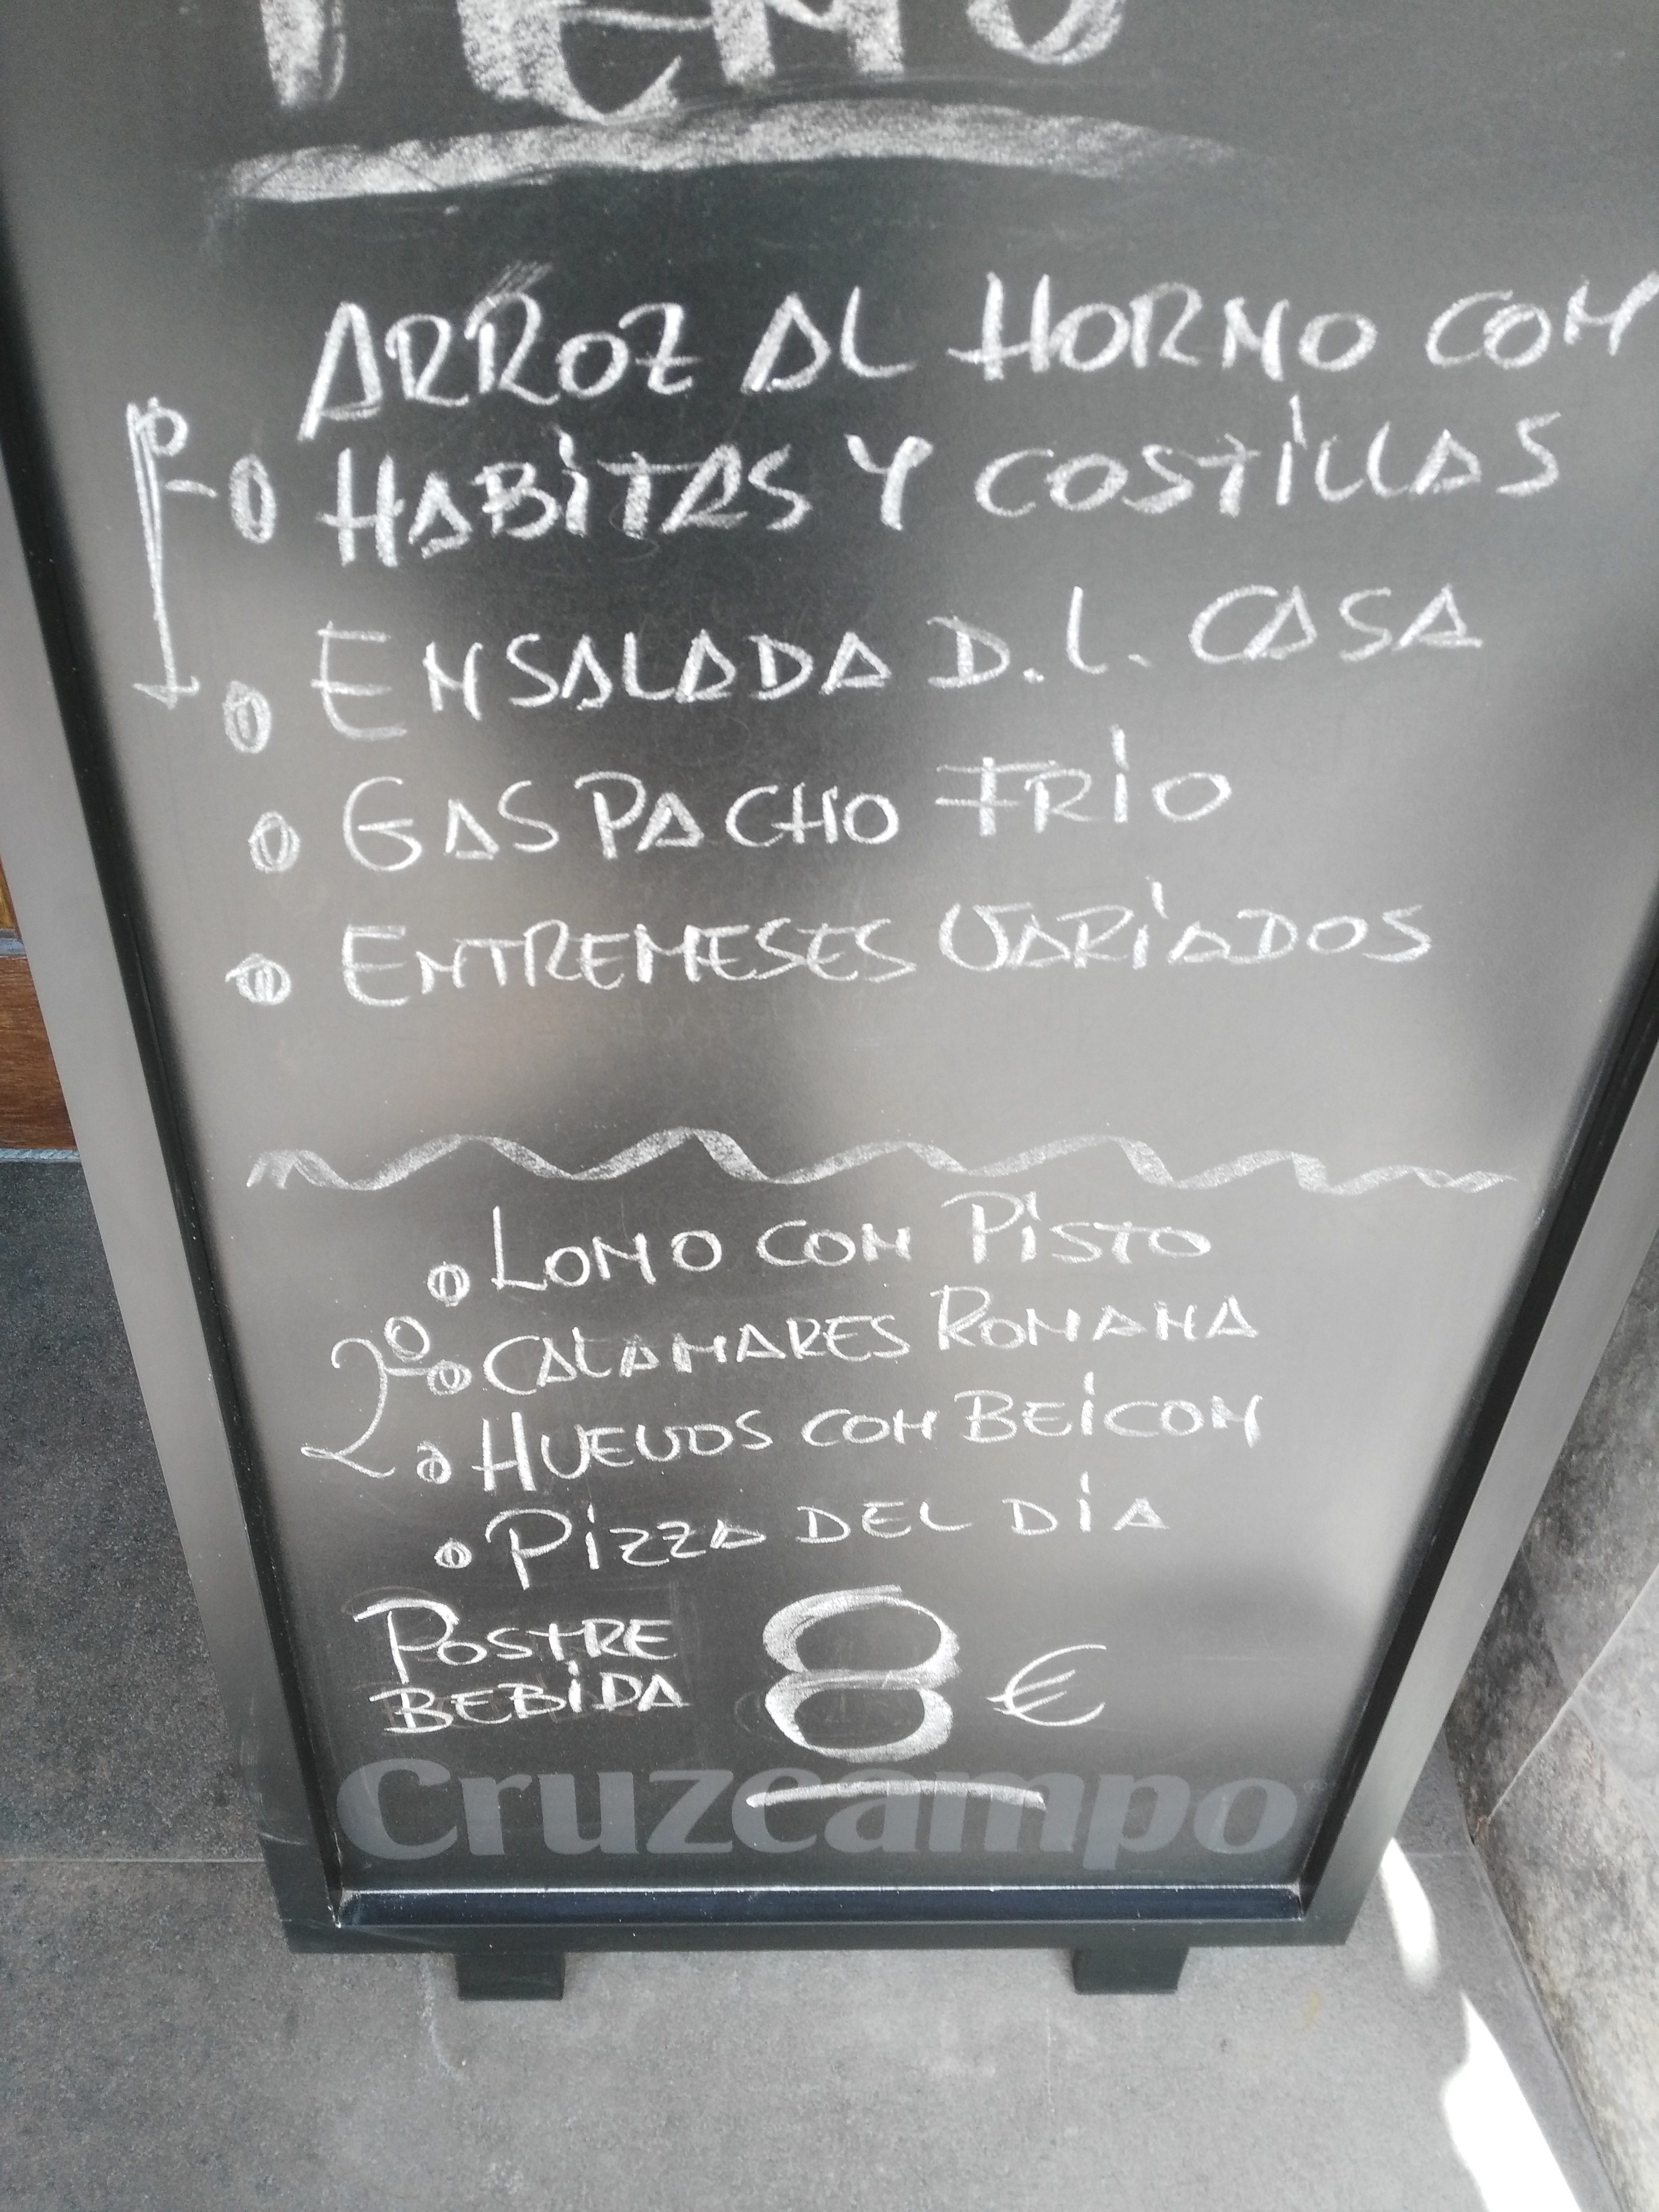 MENU
ARROZ AL HORNO CON
1º HABITAS Y COSTILLAS
ENSALADA D.L. CASA
GASPACHO FRIO
ENTREMESES VARIADOS
LOMO CON PISTO
2º CALAMARES ROMANA
HUEVOS CON BEICON
PIZZA DEL DIA
POSTRE
BEBIDA 8 €
Cruzcampo